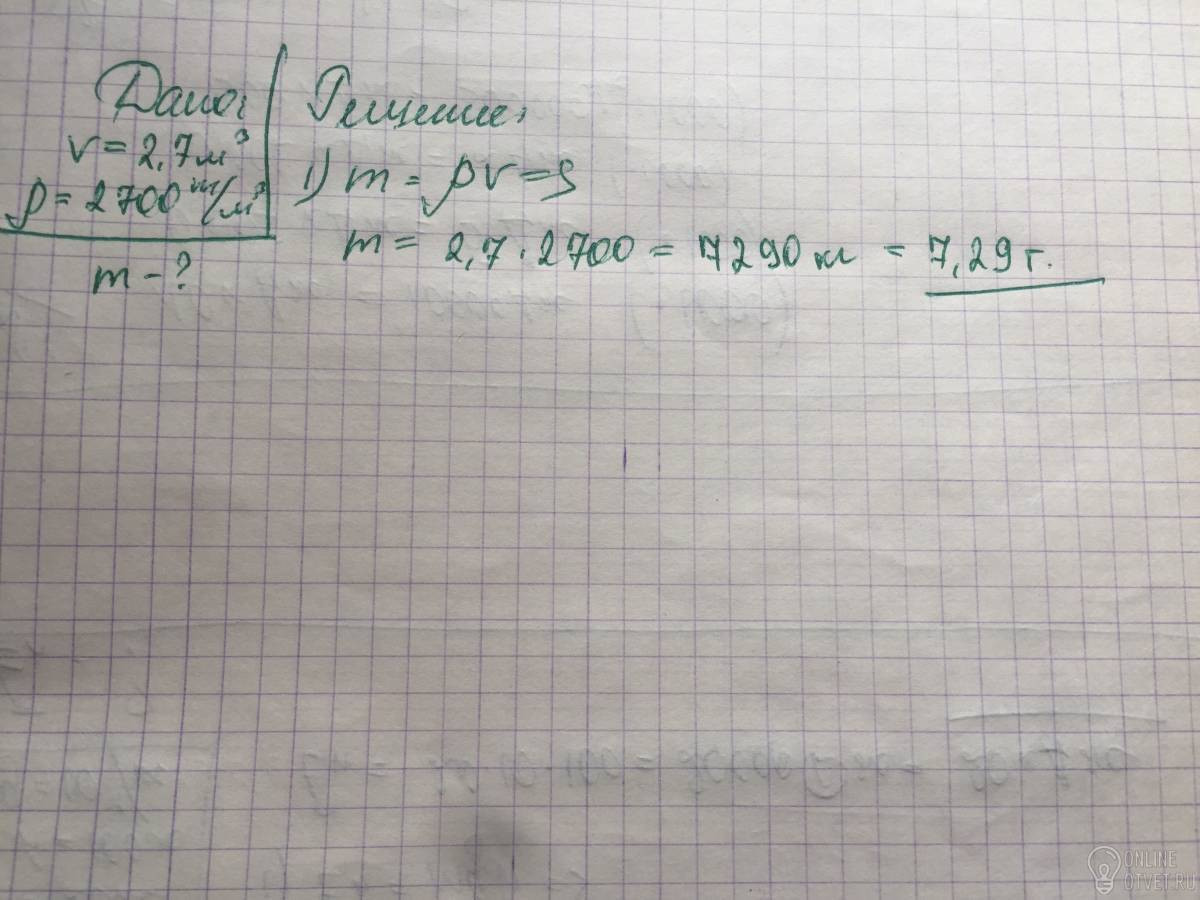 Дано:
v = 2,7 м³
ρ = 2700 кг/м³
m - ?
Решение:
1) m = ρv =>
m = 2,7 · 2700 = 7290 кг = 7,29 т.
ONLINE
OTVET.RU